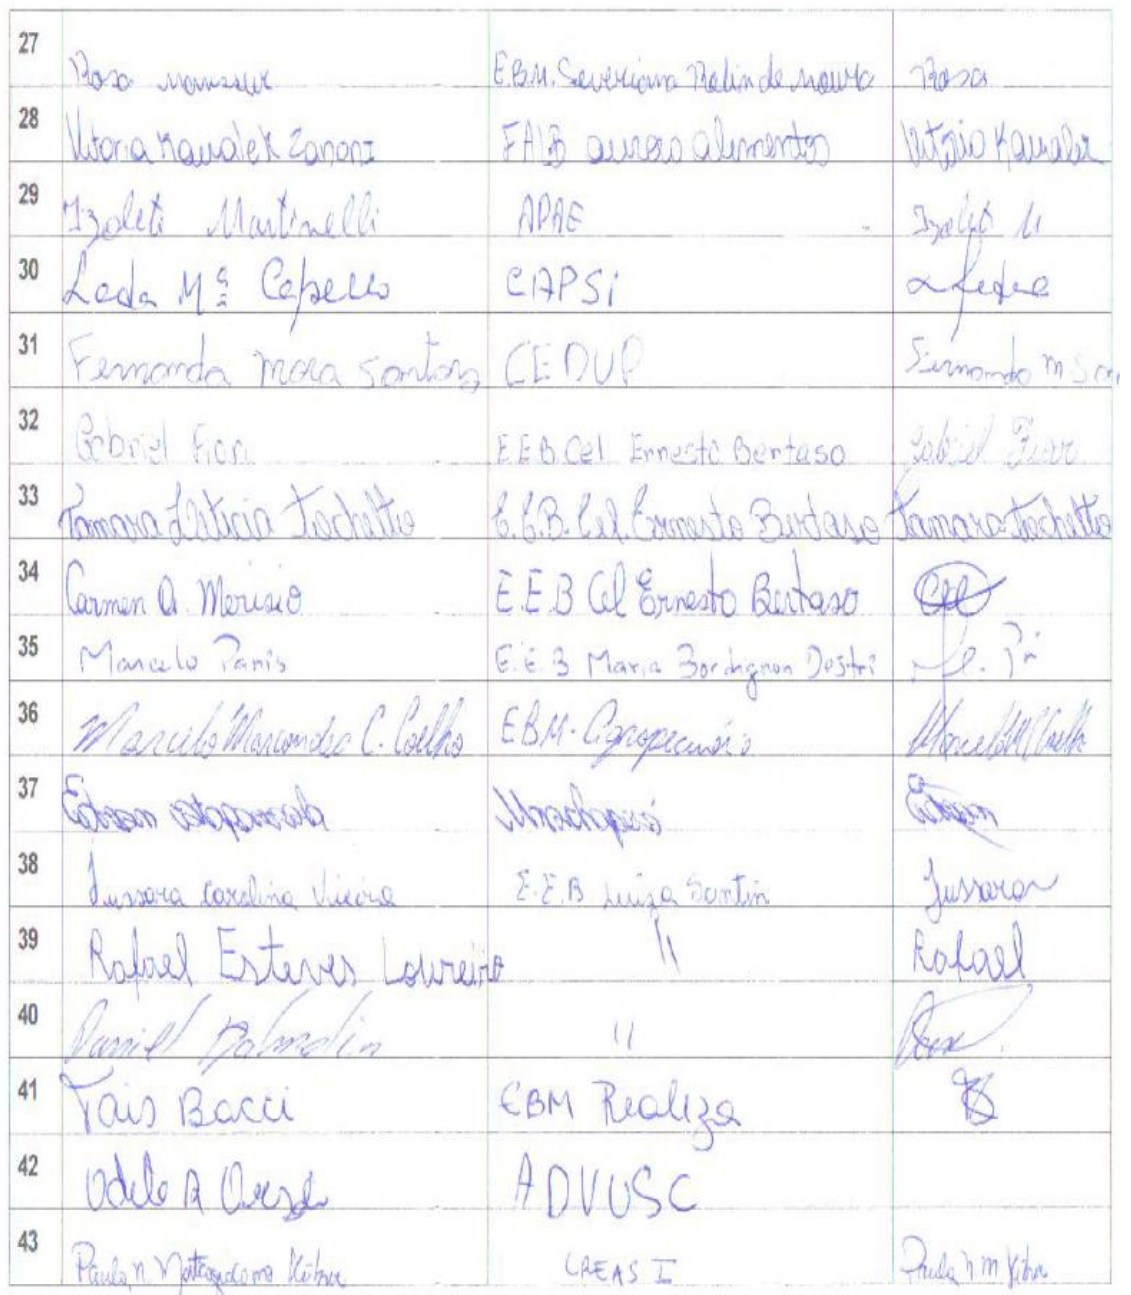 27 Rosa E.B.M. Severiano Rolin de Moura Rosa
28 Vitoria Kawalek Zanoni aurora alimentos Vitória Kawalek
29 Izoleti Martinelli APAE Izoleti M
30 Leda Mª Capello CAPSi Leda
31 Fernanda Mara Santos CEDUP Fernanda M San
32 Gabriel Fiori E.E.B Cel Ernesto Bertaso Gabriel Fiori
33 Tamara Leticia Tochetto E.E.B. Cel. Ernesto Bertaso Tamara Tochetto
34 Carmen A. Merisio E.E.B Cel Ernesto Bertaso
35 Marcelo Panis E.E.B Maria Bordignon Destri
36 Marcelo Marcondes C. Coelho EBM. Agropecuário
37 Edson Unochapecó Edson
38 Jussara Carolina Vieira E.E.B Luiza Santin Jussara
39 Rafael Esteves Loureiro 11 Rafael
40 Daniel 11
41 Tais Bacci EBM Realeza
42 Odete A ADVUSC
43 Paula N. CREAS I Paula N M